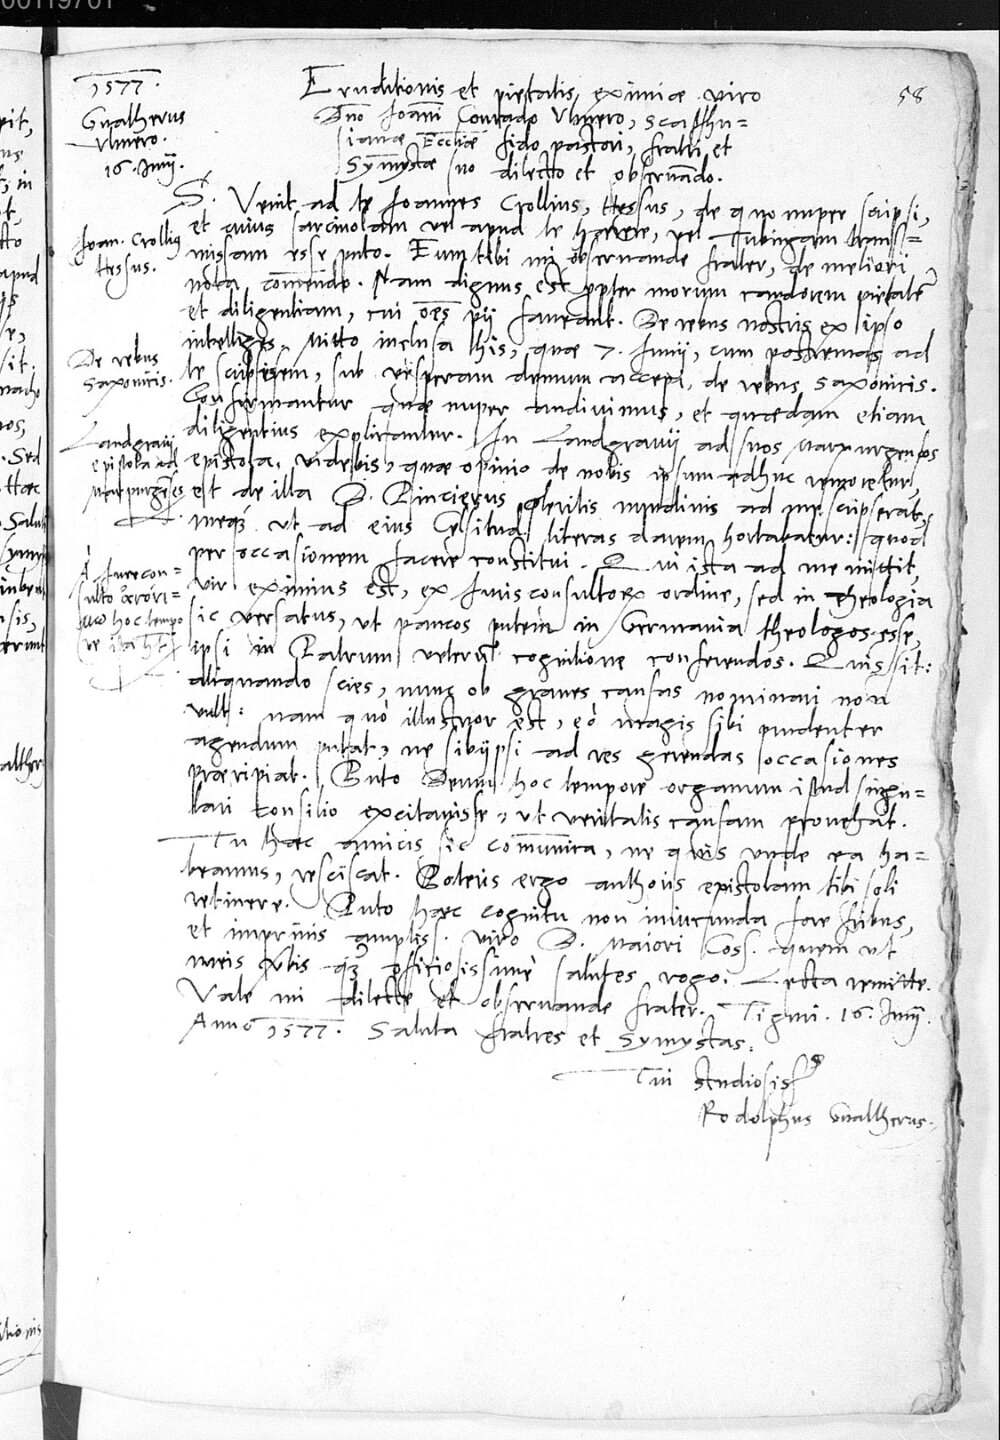 58
1577.
Gualtherus
Vlmero.
16. Junij.
Eruditionis et pietatis eximiae viro
Dno Joani Conrado Vlmero, Scaffhu=
sianae Eccliae fido pastori, fratri et
Symystae suo dilecto et obseruando.
S. Venit ad te Joannes Crollius, Hessus, de quo nuper scripsi,
et cuius sarcinolam vel apud te haerere, vel Tubingam transs=
missam esse puto. Eum tibi mi obseruande frater, de meliori
nota comendo. Nam dignus est propter morum candorem pietatem
et diligentiam, cui oes pij faueant. De rebus nostris ex ipso
intelliges. Mitto inclusa his, quae 7. Junij, cum postremas ad
te scripsissem, sub vesperam demum accepi, de rebus Saxonicis.
Confirmantur quae nuper audiuimus, et quaedam etiam
diligentius explicantur. In Landgrauij ad suos Marpurgenses
epistola, videbis, quae opinio de nobis ipsum adhuc remoretur,
est de illa D. Pincierus plerilis nundinis ad me scripserat,
meque vt ad eius Celsitud. literas darem hortabatur: quod
per occasionem facere constitui. Qui ista ad me mittit,
vir eximius est, ex Jurisconsultorum ordine, sed in Theologia
sic versatus, vt paucos putem in Germania theologos esse,
ipsi in Patrum veterum cognitione conferendos. Quis sit:
aliquando scies, nunc ob graues causas nominari non
vult: nam quò illustrior est, eò magis sibi prudenter
agendum putat, ne sibijpsi ad res gerendas occasiones
praeripiat. Puto Deum hoc tempore organum istud singu=
lari consilio excitauisse, vt veritatis causam prouehat.
Tu haec amicis sic comunica, ne quis vnde ea ha=
beamus, resciscat. Poteris ergo authoris epistolam tibi soli
retinere. Puto haec cognitu non iniucunda fore fribus,
et imprimis ampliss. viro D. Maiori Coss. quem vt
meis vbis quam officiosissimè salutes rogo. Lecta remitte.
Vale mi dilecte et obseruande frater. Tiguri. 16. Junij.
Anno 1577. Saluta fratres et Symystas.
Tui studiosiss
Rodolphus Gualtherus.
Joan. Crollius
Hessus.
De rebus
Saxonicis.
Landgrauij
epistola ad
Marpurgeses
A Jurecon=
sulto
hoc tempo
re